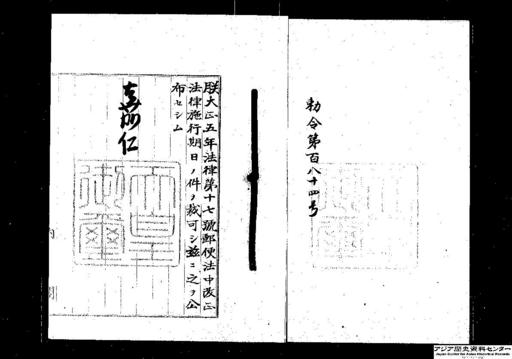 勅令第百八十四号
朕大正五年法律第十七號郵便法中改正
法律施行期日ノ件ヲ裁可シ茲ニ之ヲ公
布セシム
嘉仁
天皇
御璽
アジア歴史資料センター
Japan Center for Asian Historical Records